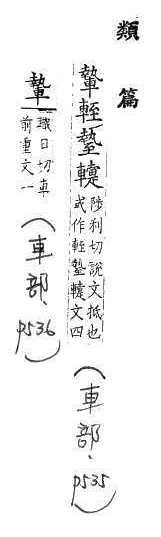 類篇
䡹輊
陟利切說文抵也
或作輊文四
(車部、p535)
䡹
職日切車
前重文一
(車部、p536)